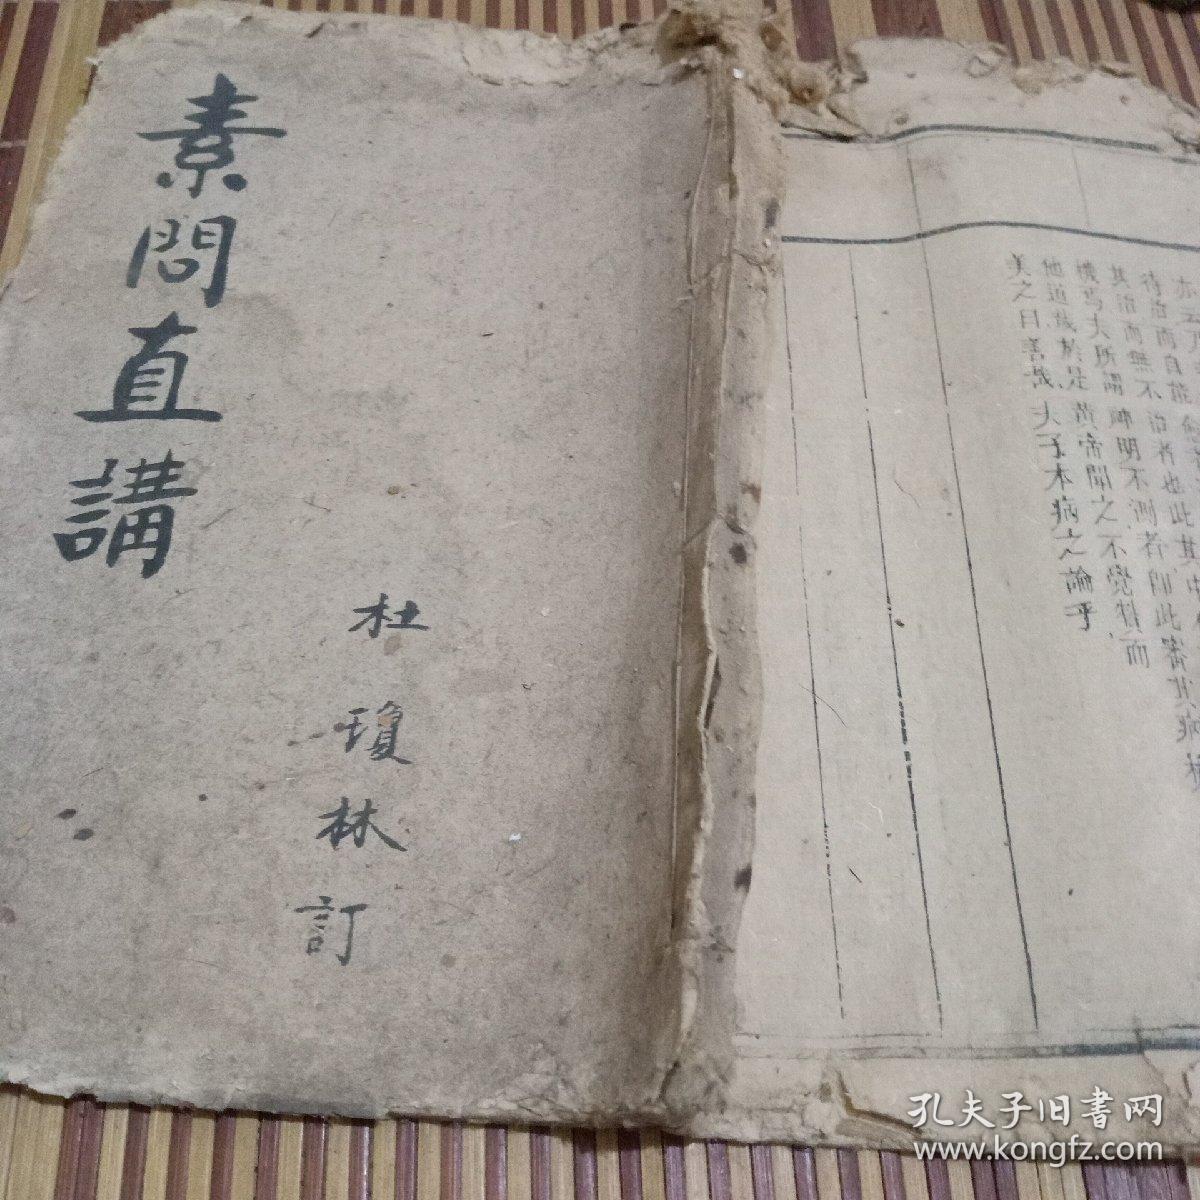 素問直講
杜瓊林訂
待治而自能
其治而無不治者也此其中
機焉夫所謂神明不測者即此審其病
他道哉於是黃帝聞之不覺贊而
美之曰善哉夫子本病之論乎
孔夫子旧書网
www.kongfz.com